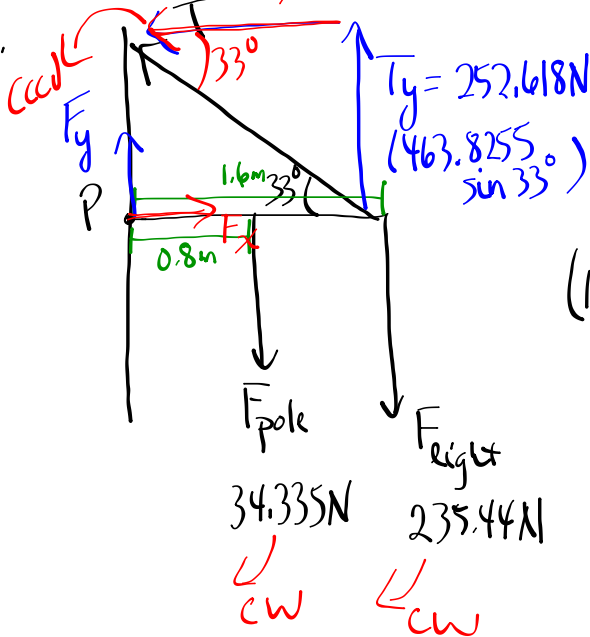 T
33°
cccw
Ty = 252.618N
(463.8255
sin 33°)
Fy
1.6m
33°
P
Fx
0.8m
(1
Fpole
Flight
34.335N
235.44N
cw
cw